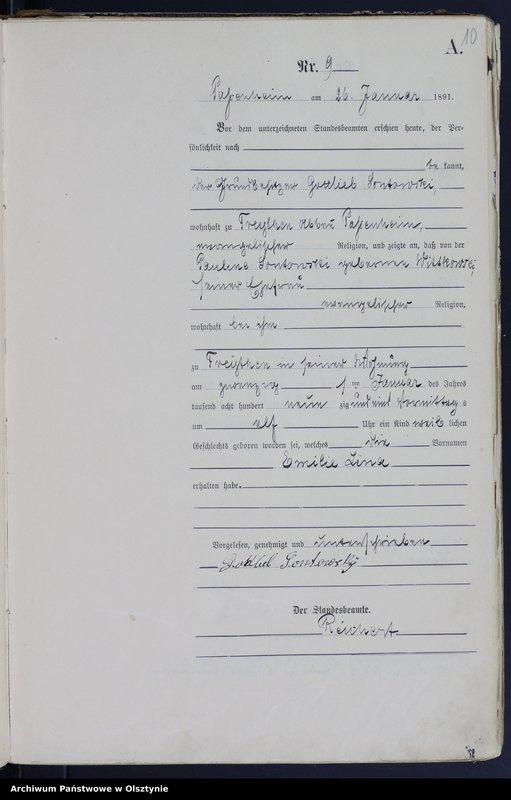 10
A.
Nr. 9
Passenheim am 26. Januar 1891.
Vor dem unterzeichneten Standesbeamten erschien heute, der Per-
sönlichkeit nach
be kannt,
der Grundbesitzer Gottlieb Sontowski,
wohnhaft zu Freythen Abbau Passenheim,
evangelischer Religion, und zeigte an, daß von der
Pauline Sontowski geborenen Wittkowski,
seiner Ehefrau
evangelischer Religion,
wohnhaft bei ihm
zu Freythen in seiner Wohnung
am zwanzig sten Januar des Jahres
tausend acht hundert neun zig und eins Vormittag s
um elf Uhr ein Kind weib lichen
Geschlechts geboren worden sei, welches die Vornamen
Emilie Lina
erhalten habe.
Vorgelesen, genehmigt und unterschrieben
Gottlieb Sontowski
Der Standesbeamte.
Reichert
Archiwum Państwowe w Olsztynie